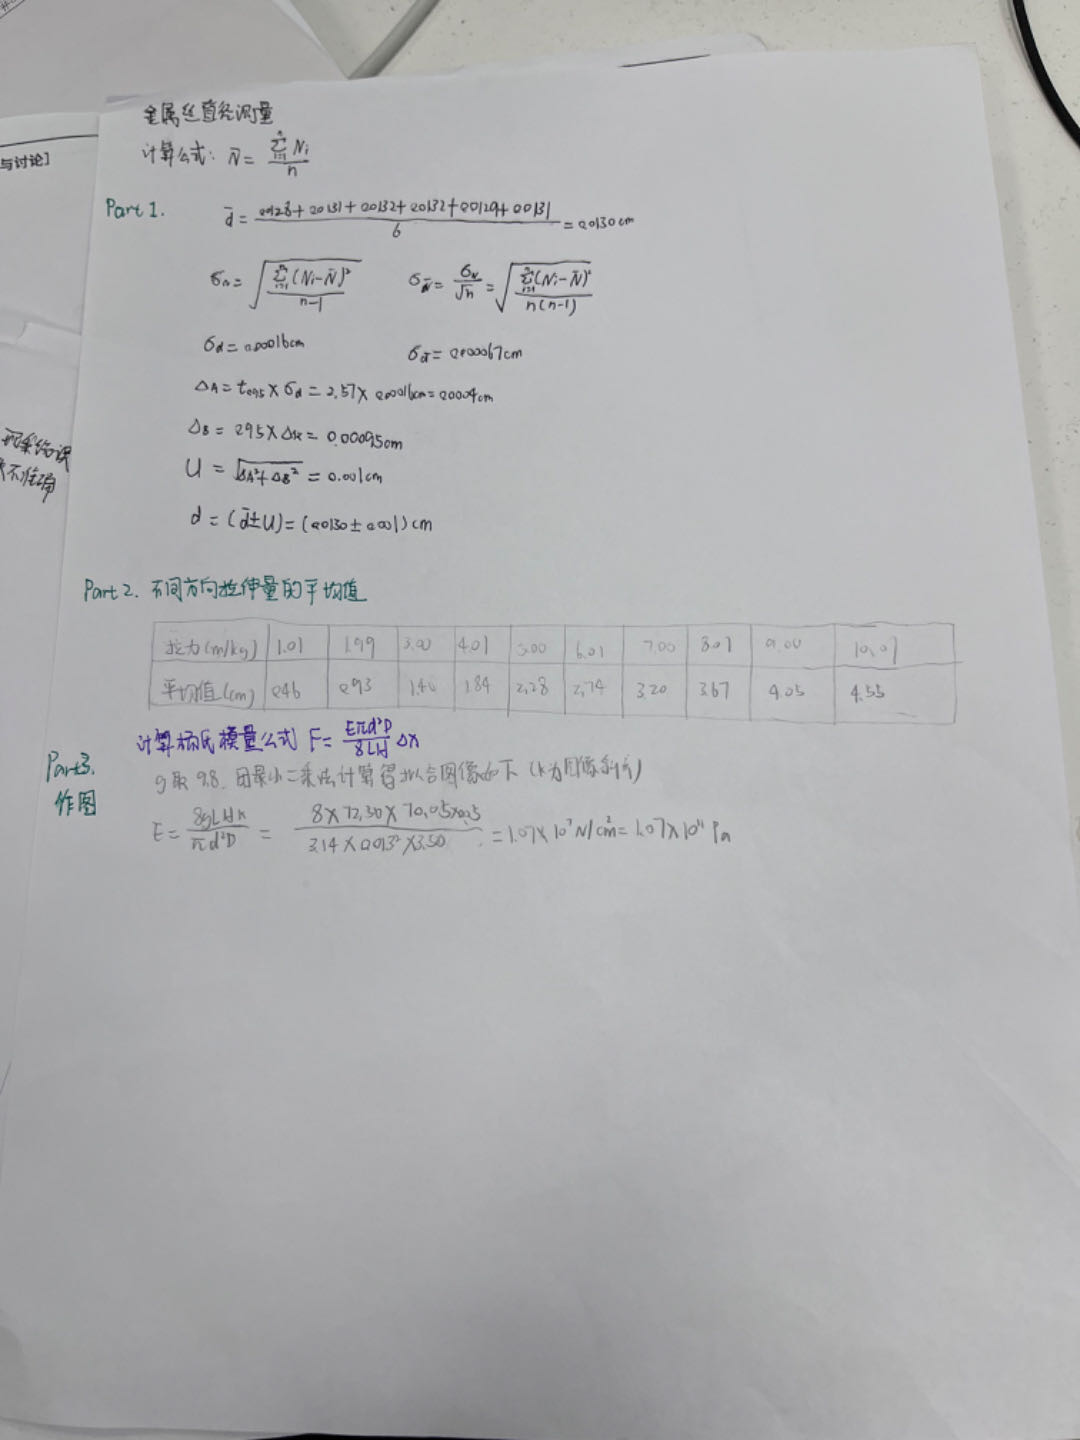 金属丝直径测量
计算公式: N̄ = Σ(i=1→n) Ni / n
与讨论]
Part 1.
d̄ = (0.0128+0.0131+0.0132+0.0132+0.0129+0.0131) / 6 = 0.0130cm
σN = √(Σ(i=1→n)(Ni-N̄)² / (n-1)) σN̄ = σN/√n = √(Σ(i=1→n)(Ni-N̄)² / n(n-1))
σd = 0.00016cm σd̄ = 0.000067cm
ΔA = t0.95 × σd = 2.57 × 0.00016cm = 0.0004cm
ΔB = 0.95 × Δ仪 = 0.00095cm
U = √(ΔA²+ΔB²) = 0.001cm
d = (d̄±U) = (0.0130±0.001)cm
不准确
Part 2. 不同方向拉伸量的平均值
拉力(m/kg) 1.01 1.99 3.00 4.01 5.00 6.01 7.00 8.01 9.00 10.01
平均值(cm) 0.46 0.93 1.40 1.84 2.28 2.74 3.20 3.67 4.05 4.55
计算杨氏模量公式 F = Eπd²D/8LH Δx
Part 3.
作图
g取9.8, 用最小二乘法计算得拟合图像如下 (k为图像斜率)
E = 8gLHk/πd²D = 8×72.30×70.05×0.5 / 3.14×0.013²×3.50 = 1.07×10⁷N/cm² = 1.07×10¹¹Pa